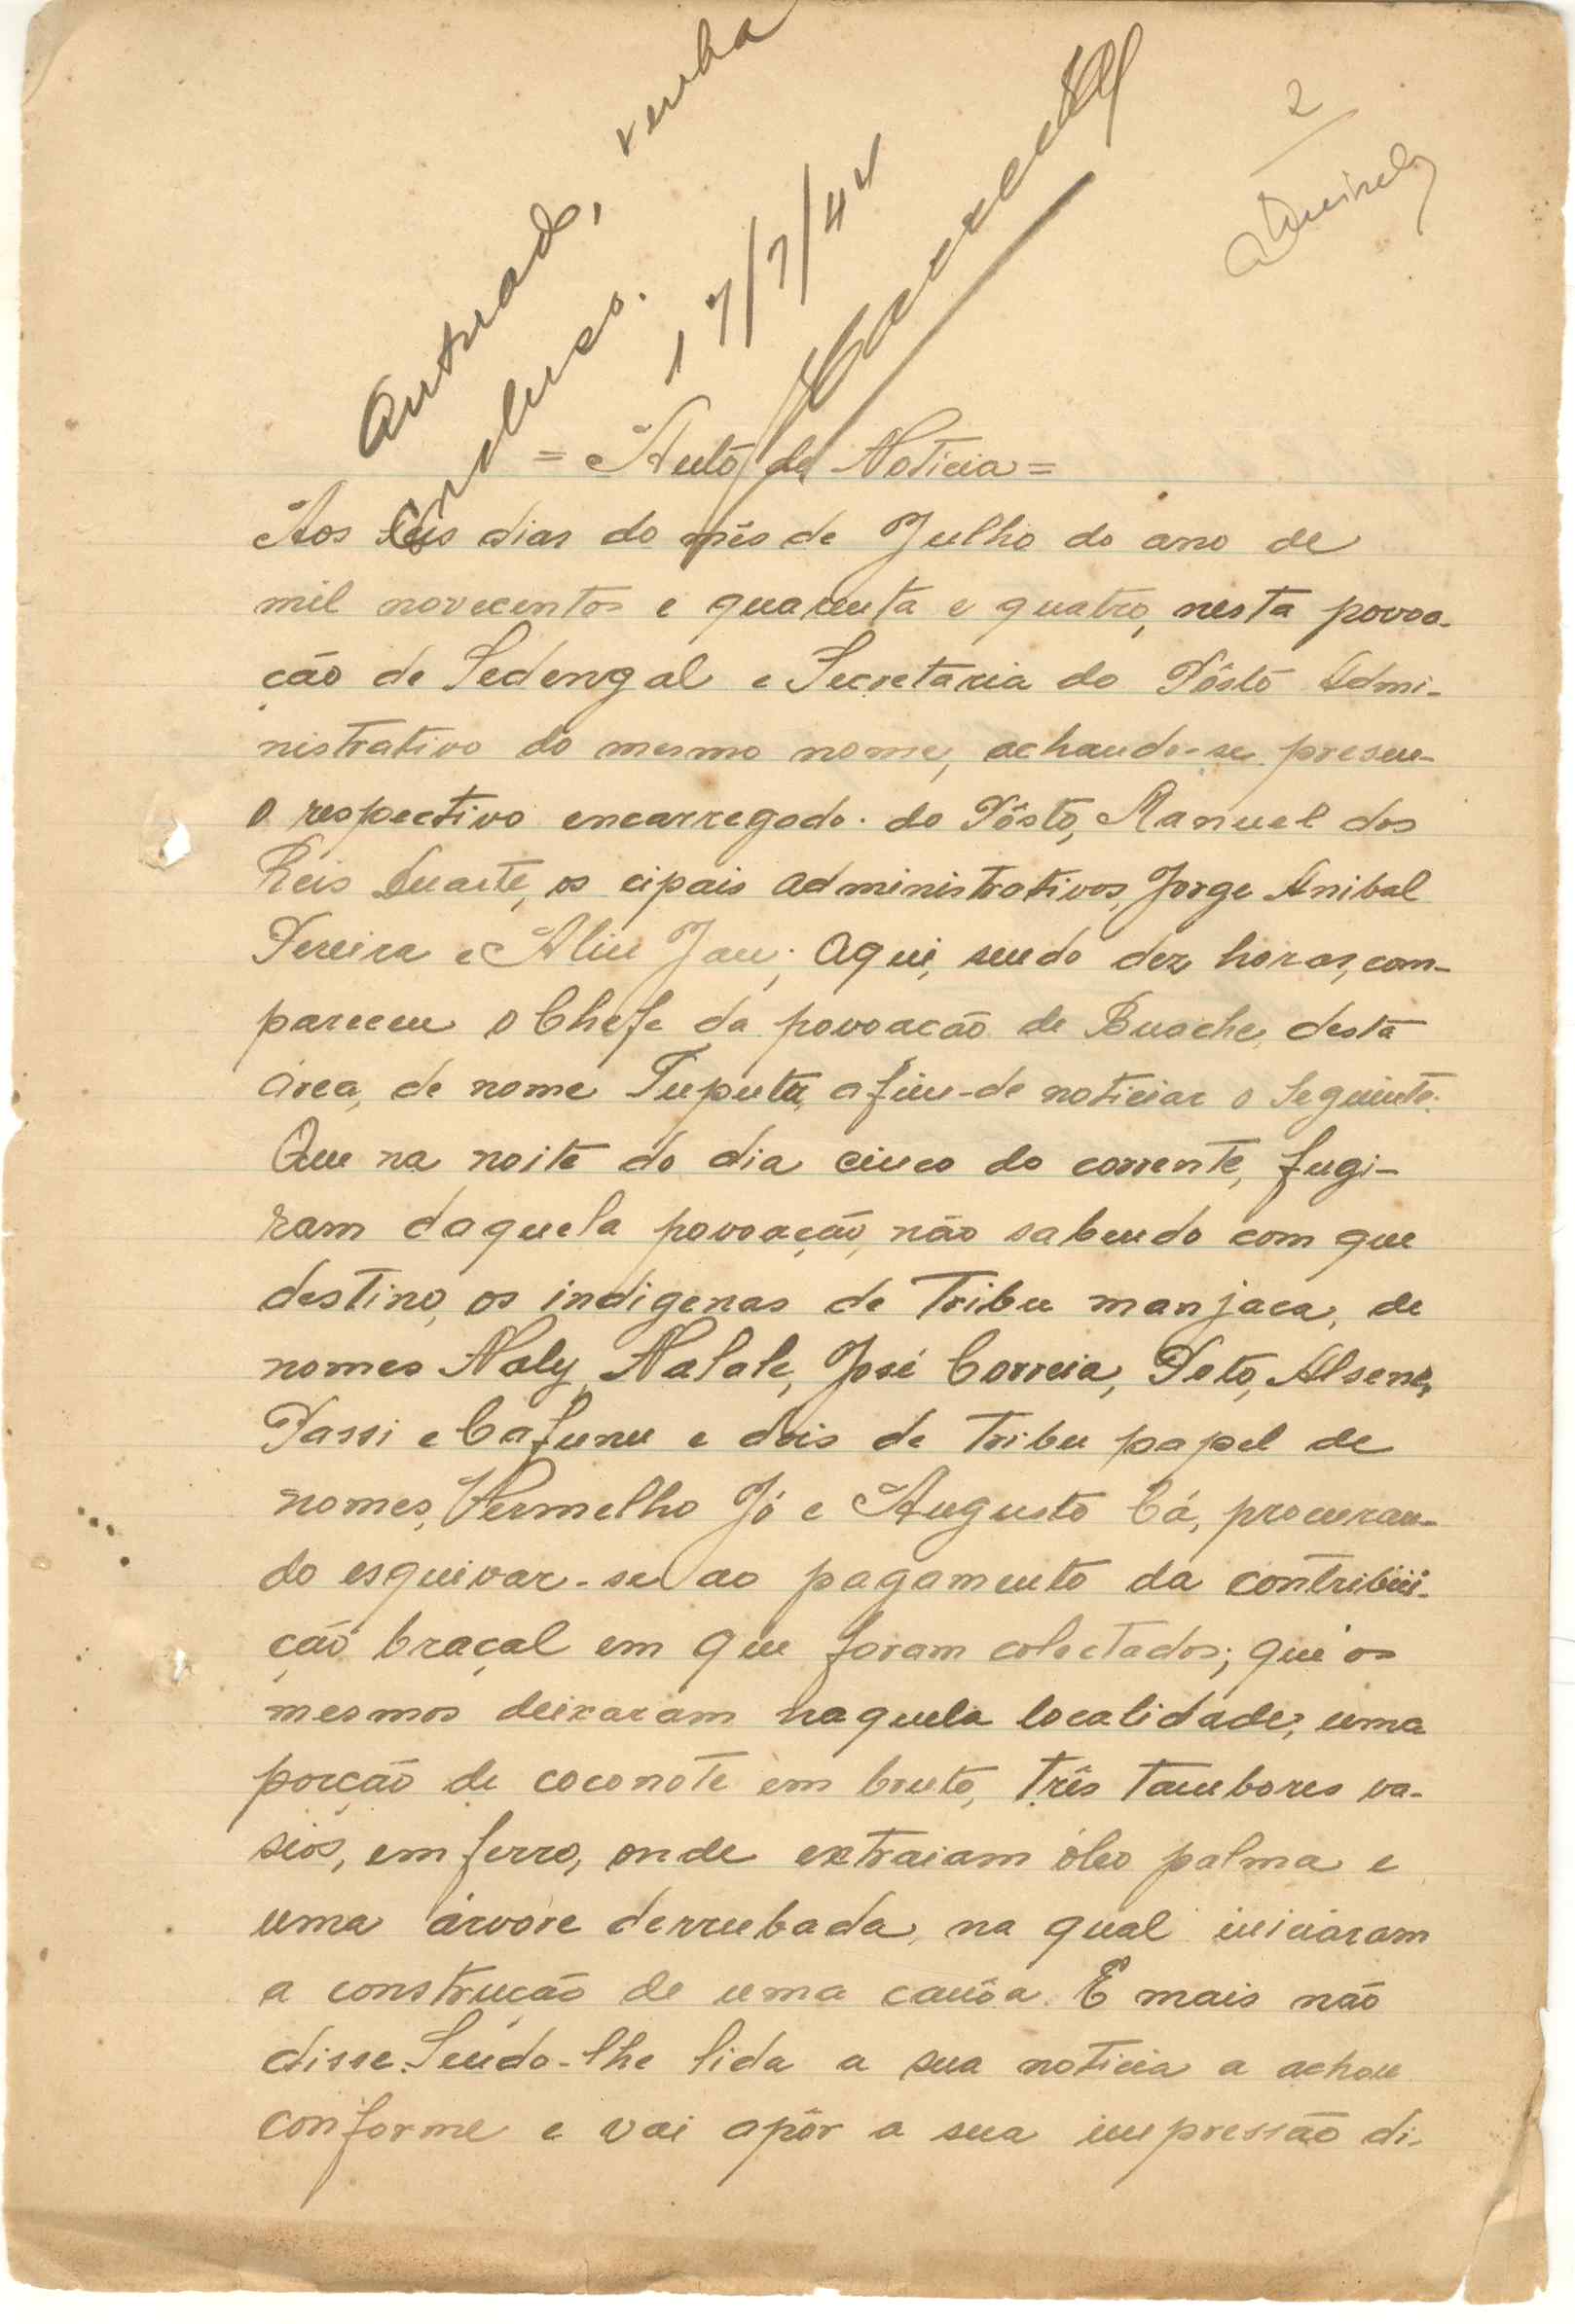 Autuado, venha
concluso.
17/7/44
2
= Auto de Noticia =
Aos seis dias do mês de Julho do ano de
mil novecentos e quarenta e quatro, nesta povoa-
ção de Sedengal e Secretaria do Pôsto Admi-
nistrativo do mesmo nome, achando-se presen-
o respectivo encarregado do Pôsto, Manuel dos
Reis Duarte, os cipais administrativos, Jorge Anibal
Pereira e Aliu Jau; Aqui, sendo dez horas, com-
pareceu o Chefe da povoacão de Buache, desta
área, de nome Tuputu, afim-de noticiar o Seguinte:
Que na noite do dia cinco do corrente, fugi-
ram daquela povoação, não sabendo com que
destino, os indigenas de Tribu manjaca, de
nomes Naly, Nalale, José Correia, Poto, Alsene,
Passi e Cafunu e dois de Tribu papel de
nomes, Vermelho Jó e Augusto Cá, procuran-
do esquivar-se ao pagamento da contribüi-
ção braçal em que foram colectados; que os
mesmos deixaram naquela localidade, uma
porção de coconote em bruto, três tambores va-
sios, em ferro, onde extraiam óleo palma e
uma árvore derrubada, na qual iniciaram
a construção de uma canôa. E mais não
disse. Sendo-lhe lida a sua noticia a achou
conforme e vai apôr a sua impressão di-